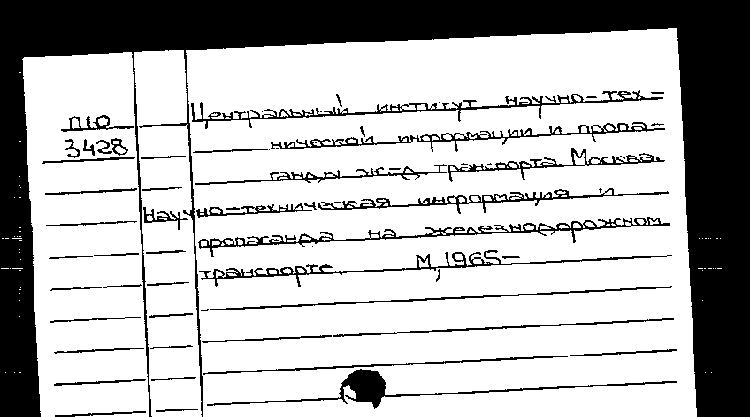 П10
3428
Центральный институт научно-тех=
нической информации и пропа=
ганды ж.-д. транспорта. Москва.
Научно-техническая информация и
пропаганда на железнодорожном
транспорте. М, 1965-